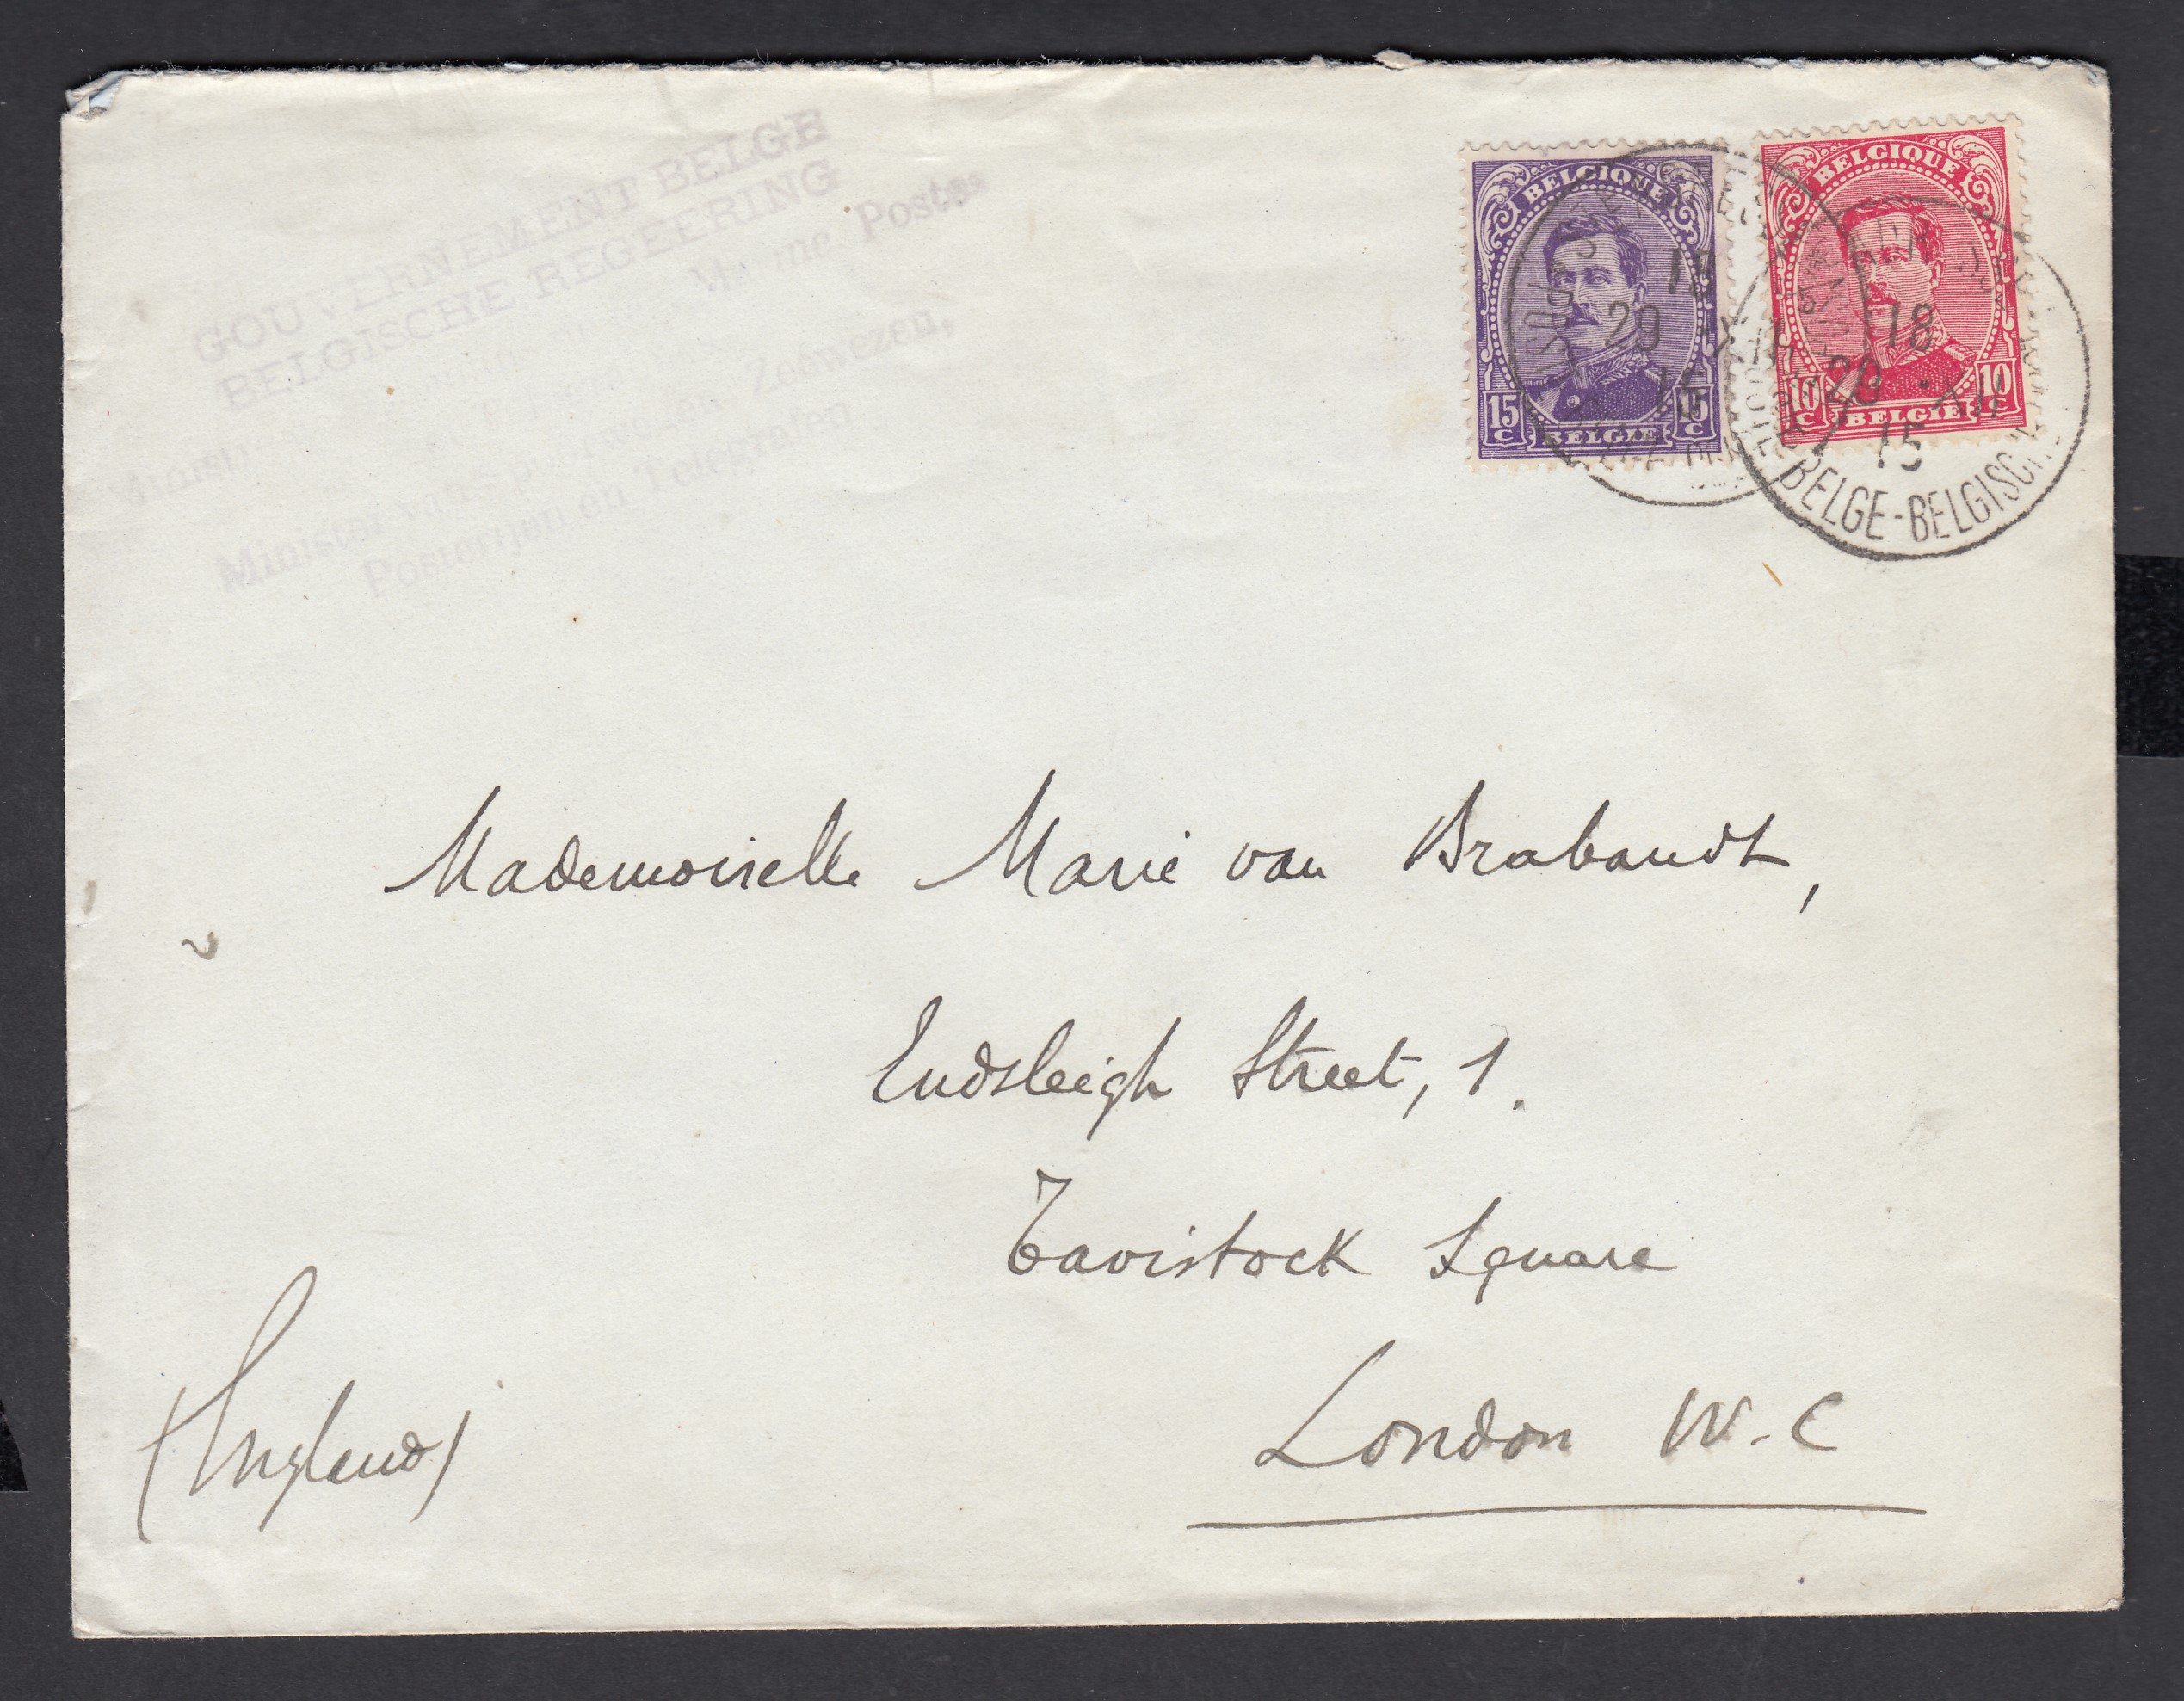 GOUVERNEMENT BELGE
BELGISCHE REGEERING
Postes
Minister van Spoorwegen, Zeewezen,
Posterijen en Telegrafen
BELGIQUE
15 C 15 C
BELGIË
BELGIQUE
10 C 10 C
BELGIË
18
29 XII
15
18
29 XII
15
BELGE-BELGISCH
Mademoiselle Marie van Brabandt,
Endsleigh Street, 1.
Tavistock Square
London W.C
(England)